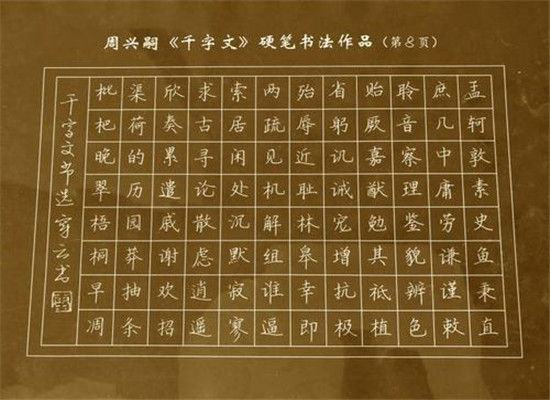 周兴嗣《千字文》硬笔书法作品（第8页）
孟轲敦素史鱼秉直
庶几中庸劳谦谨敕
聆音察理鉴貌辨色
贻厥嘉猷勉其祗植
省躬讥诫宠增抗极
殆辱近耻林皋幸即
两疏见机解组谁逼
索居闲处沉默寂寥
求古寻论散虑逍遥
欣奏累遣戚谢欢招
渠荷的历园莽抽条
枇杷晚翠梧桐早凋
千字文节选穿云书